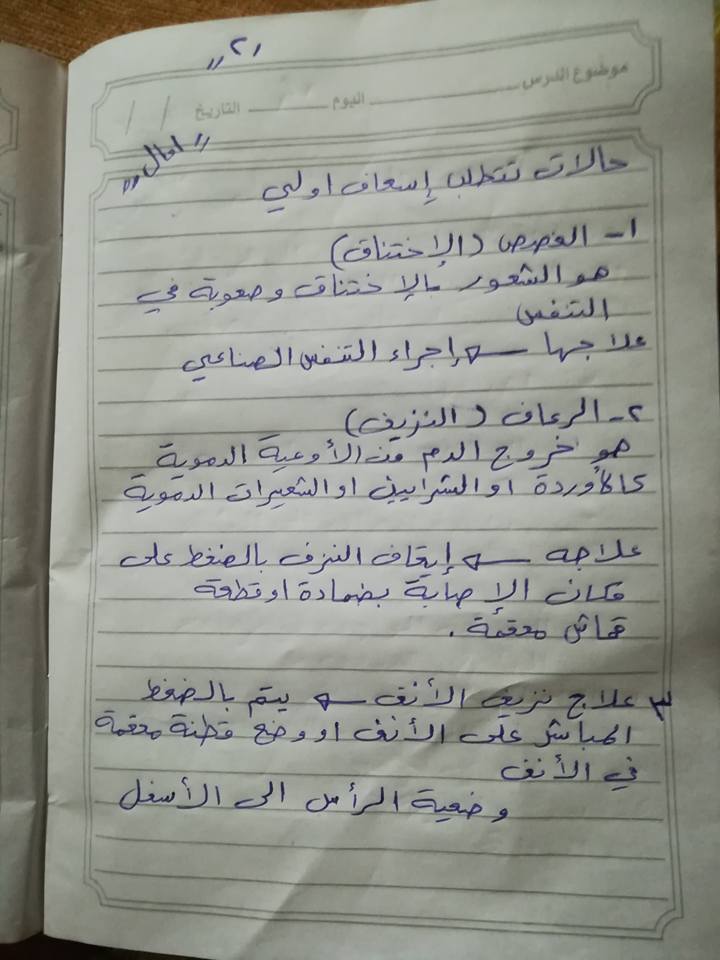 "٢"
موضوع الدرس اليوم التاريخ / /
حالات تتطلب إسعاف اولي
١- الغصص (الإختناق)
هو الشعور بالإختناق وصعوبة في
التنفس
علاجها ← إجراء التنفس الصناعي
٢- الرعاف (النزيف)
هو خروج الدم من الأوعية الدموية
كالأوردة او الشرايين او الشعيرات الدموية
علاجه ← إيقاف النزف بالضغط على
مكان الإصابة بضمادة او قطعة
قماش معقمة.
٣ علاج نزيف الأنف ← يتم بالضغط
المباشر على الأنف او وضع قطنة معقمة
في الأنف
وضعية الرأس الى الأسفل